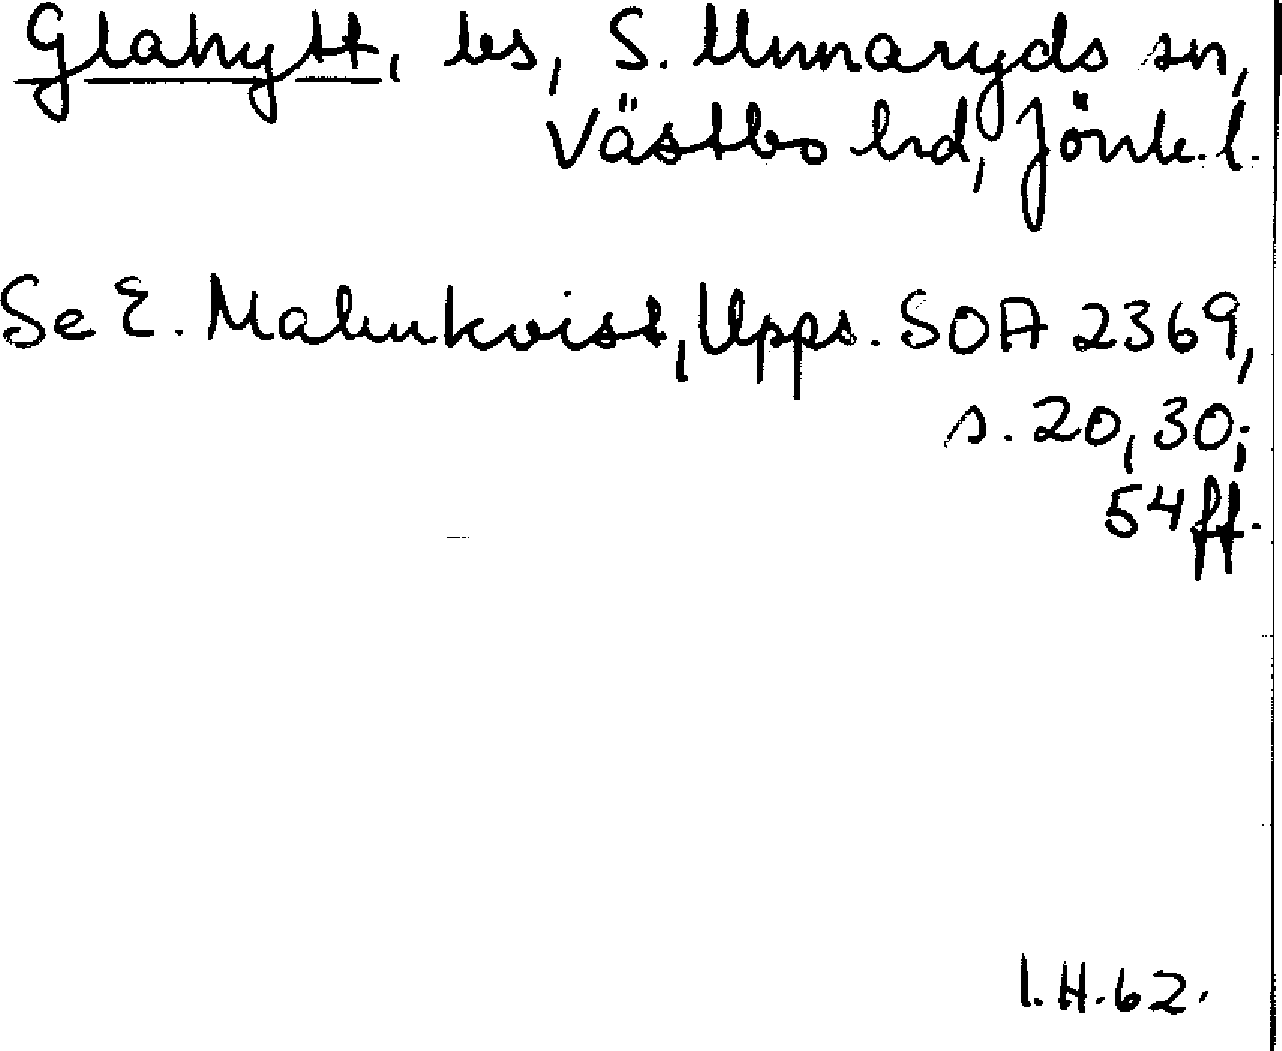 Glahytt, bes, S. Unnaryds sn,
Västbo hd, Jönk. l.
Se E. Malmkvist, Upps. SOA 2369,
s. 20, 30;
54 ff.
I.H. 62.